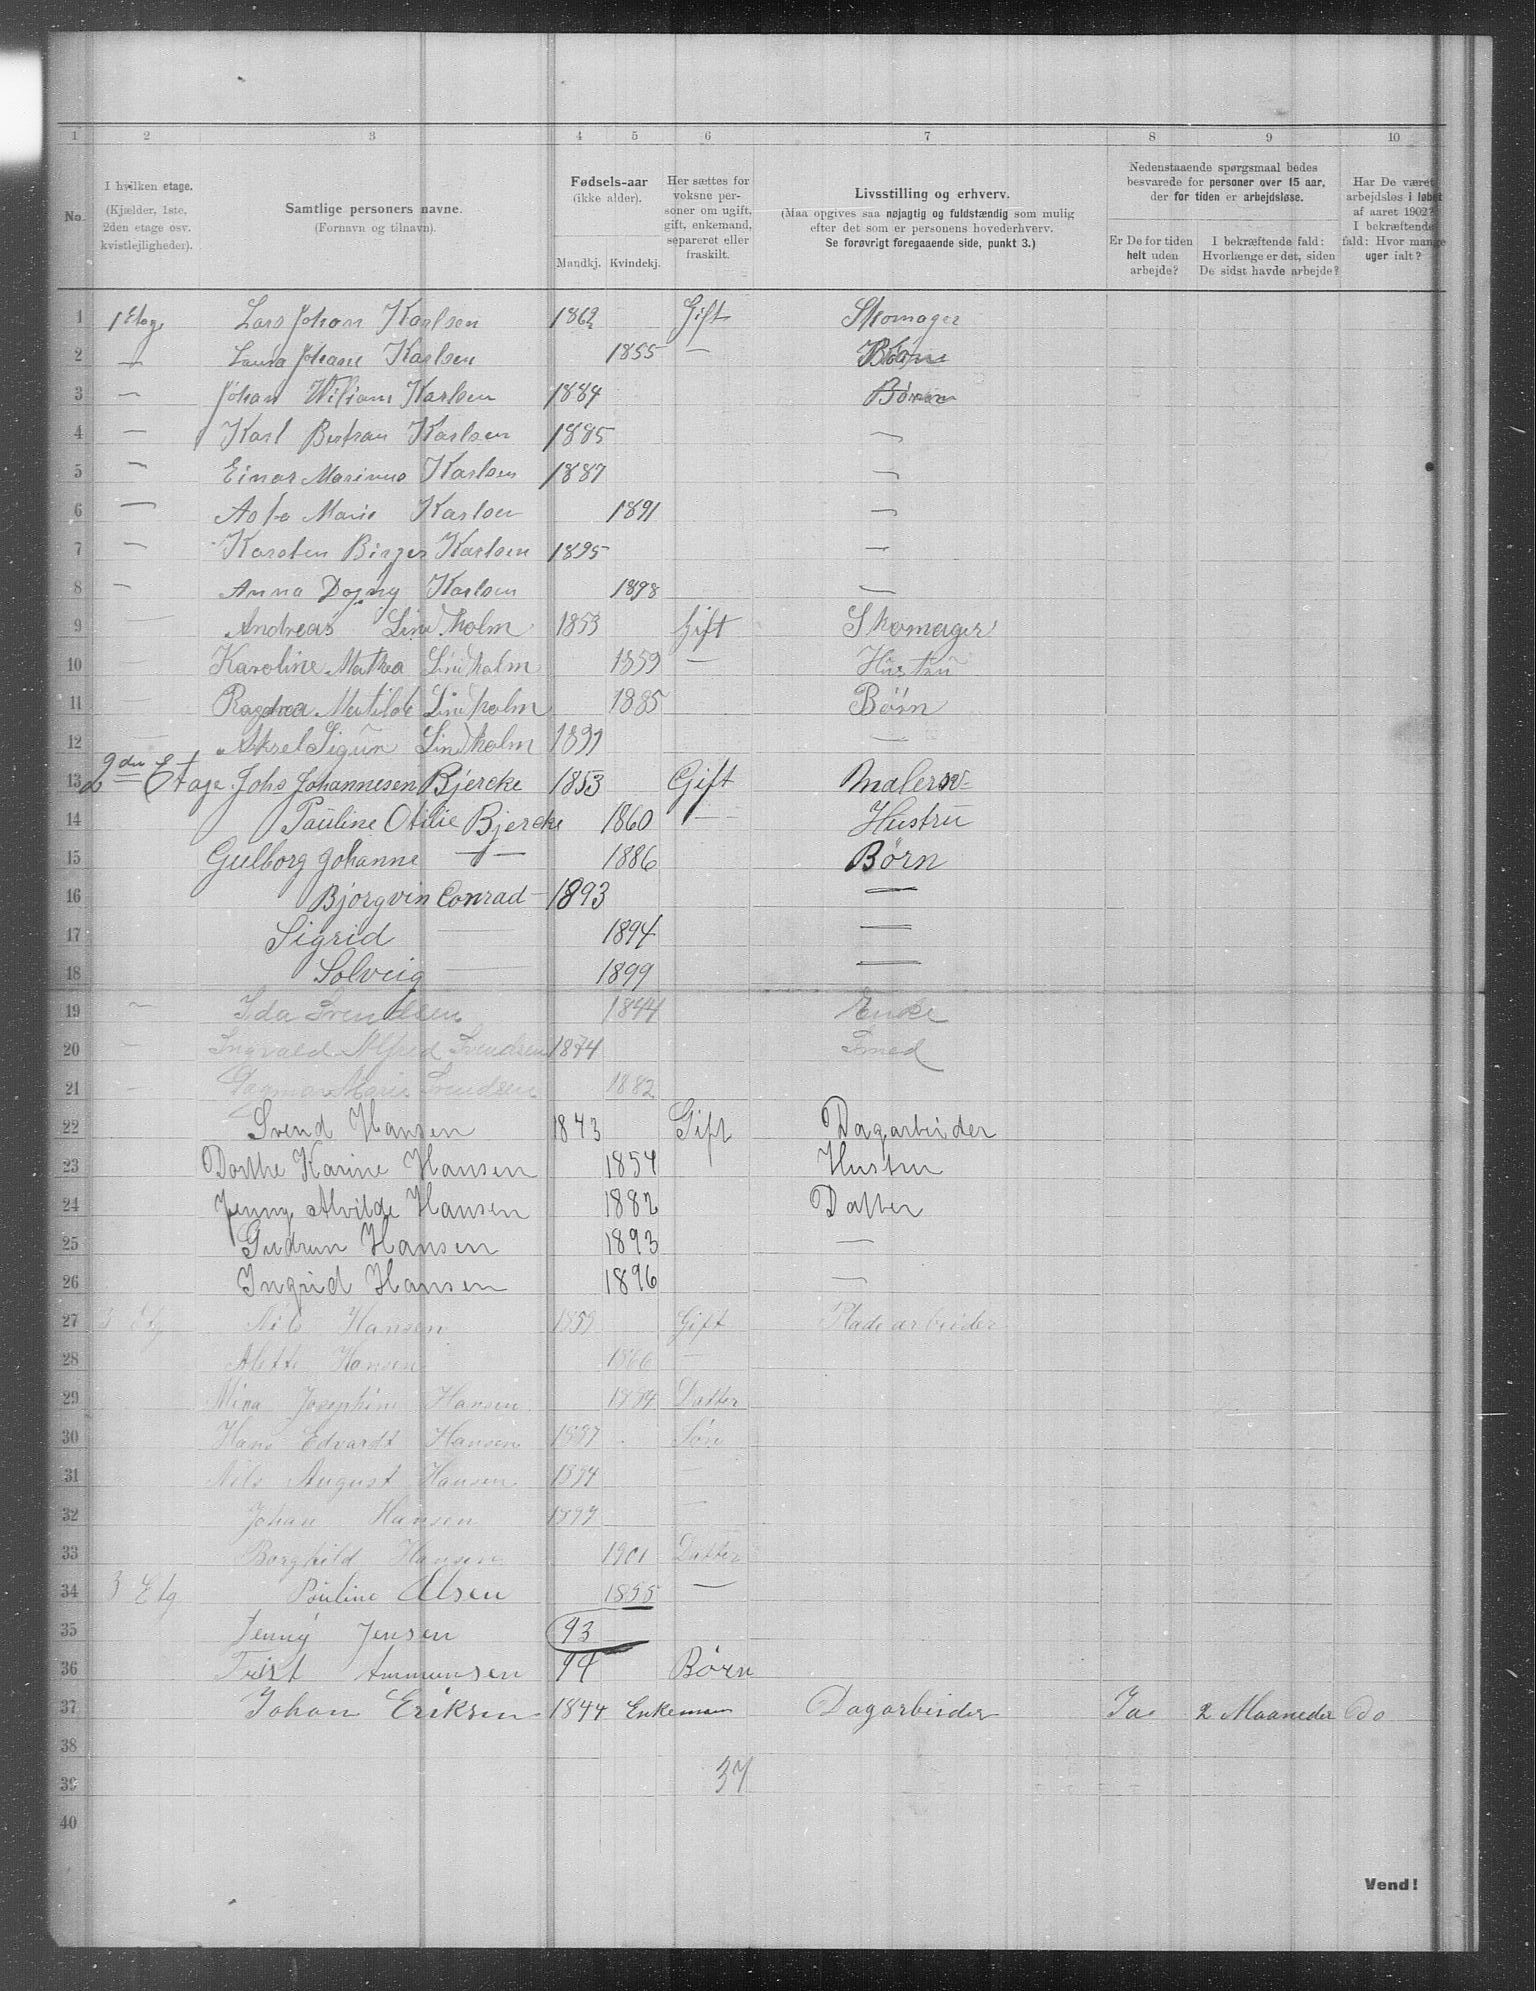 1 2 3 4 5 6 7 8 9 10
No. I hvilken etage. (Kjælder, 1ste, 2den etage osv. kvistlejligheder). Samtlige personers navne. (Fornavn og tilnavn). Fødsels-aar (ikke alder). Mandkj. Kvindekj. Her sættes for voksne personer om ugift, gift, enkemand, separeret eller fraskilt. Livsstilling og erhverv. (Maa opgives saa nøjagtig og fuldstændig som mulig efter det som er personens hovederhverv. Se forøvrigt foregaaende side, punkt 3.) Nedenstaaende spørgsmaal bedes besvarede for personer over 15 aar, der for tiden er arbejdsløse. Er De for tiden helt uden arbejde? I bekræftende fald: Hvorlænge er det, siden De sidst havde arbejde? Har De været arbejdsløs i løbet af aaret 1902? I bekræftende fald: Hvor mange uger ialt?
1 1 Etage Lars Johan Karlsen 1862 Gift Skomager
2 — Laura Johane Karlsen 1855 —
3 — Johan Wiliam Karlsen 1884 Børn
4 — Karl Bertran Karlsen 1885 —
5 — Einar Marinus Karlsen 1887 —
6 — Asta Marie Karlsen 1891 —
7 — Karsten Birger Karlsen 1895 —
8 — Anna Dagny Karlsen 1898 —
9 — Andreas Lindholm 1853 Gift Skomager
10 — Karoline Mathea Lindholm 1859 — Hustru
11 — Ragna Matilde Lindholm 1885 Børn
12 — Aksel Sigur Lindholm 1891 —
13 2den Etage Johs Johannesen Bjercke 1853 Gift Malersv=
14 Pauline Otilie Bjercke 1860 — Hustru
15 Gulborg Johanne —"— 1886 Børn
16 Bjørgvin Conrad — 1893 —
17 Sigrid — 1894 —
18 Solveig — 1899 —
19 — Ida Svendsen 1844 Enke
20 — Ingvald Alfred Svendsen 1874 Smed
21 — Dagmar Marie Svendsen 1882
22 Svend Hansen 1843 Gift Dagarbeider
23 Dorthe Karine Hansen 1854 Hustru
24 Jenny Alvilde Hansen 1882 Datter
25 Gudrun Hansen 1893 —
26 Ingrid Hansen 1896 —
27 3 Etg Nils Hansen 1859 Gift Pladearbeider
28 Alette Hansen 1866 —
29 Mina Josephine Hansen 1884 Datter
30 Hans Edvardt Hansen 1887 Søn
31 Nils August Hansen 1894 —
32 Johan Hansen 1899 —
33 Borghild Hansen 1901 Datter
34 3 Etg Pauline Olsen 1855 —
35 Jenny Jensen 93
36 Amundsen 94 Børn
37 Johan Eriksen 1844 Enkeman Dagarbeider Ja 2 Maaneder do
38
39 37
40
Vend!